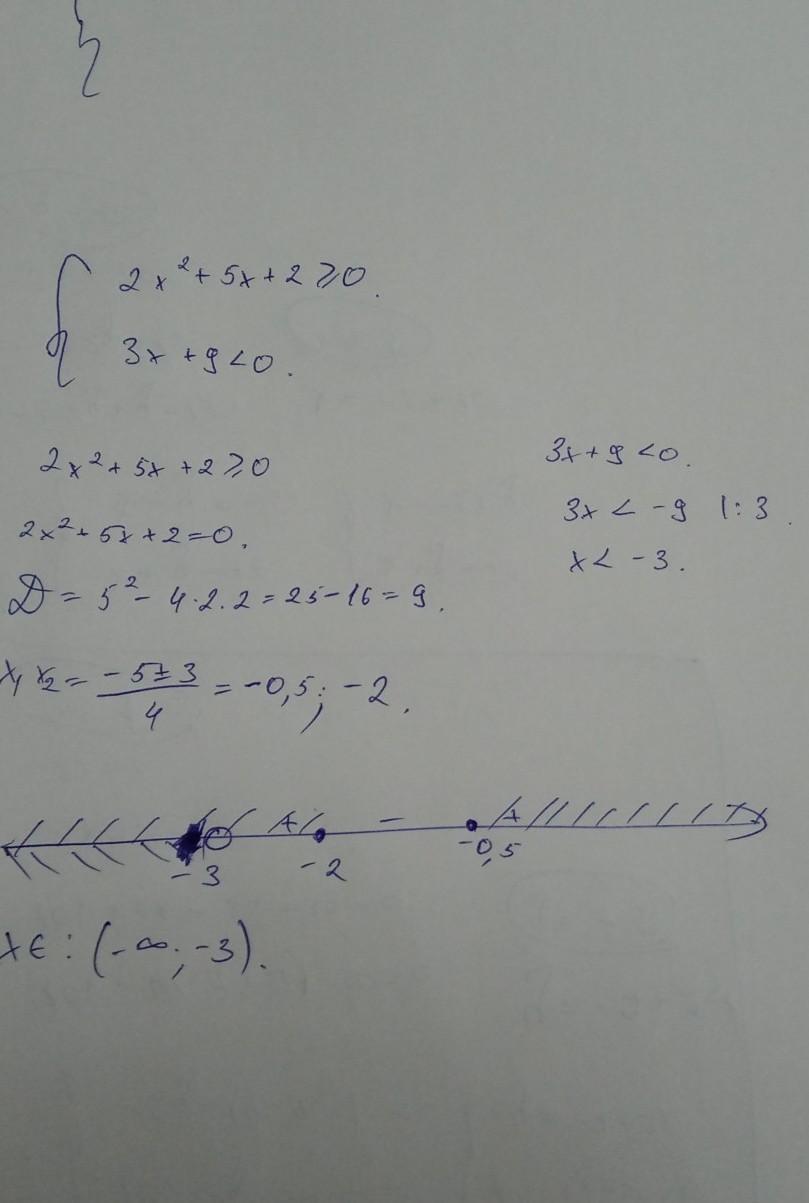 2x² + 5x + 2 ⩾ 0.
3x + 9 < 0.
2x² + 5x + 2 ⩾ 0
2x² + 5x + 2 = 0.
D = 5² - 4·2·2 = 25 - 16 = 9.
x₁ x₂ = (-5 ± 3)/4 = -0,5; -2.
3x + 9 < 0.
3x < -9 |: 3.
x < -3.
+ - +
-3 -2 -0,5
x ∈ : (-∞; -3).